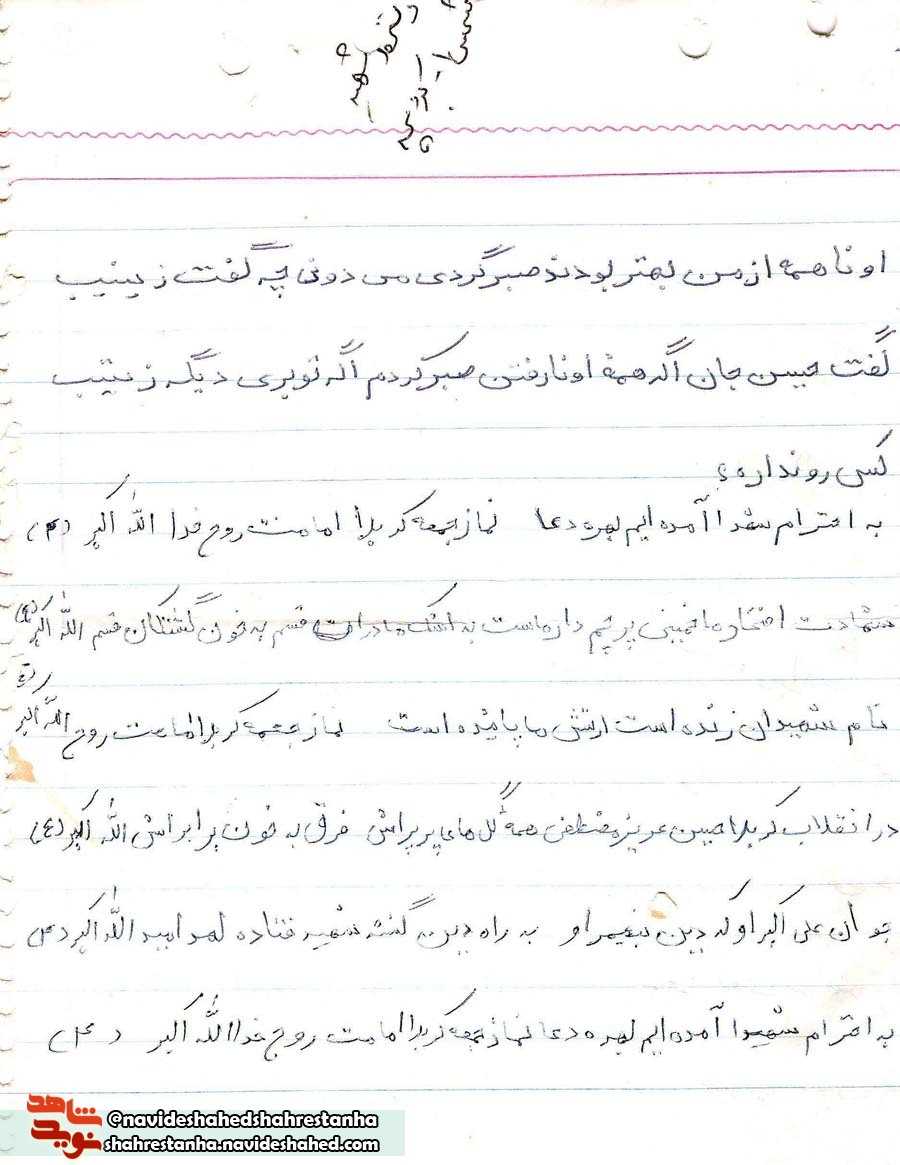 اونا همه از من بهتر بودند صبر کردی می دونی چه گفت زینب
گفت حسین جان اگه همهٔ اونا رفتن صبر کردم اگه تو بری دیگه زینب
کسی رو نداره؟
به احترام شهدا آمده ایم بهره دعا نماز جمعه کربلا امامت روح خدا الله اکبر (۴)
شهادت افتخار ما خمینی پرچم دار ماست به اشک مادران قسم به خون گشتگان قسم الله اکبر
نام شهیدان زنده است ارتش ما پاینده است نماز جمعه کربلا امامت روح الله اکبر
در انقلاب کربلا حسین عزیز مصطفی همه گل های پر پراش غرق به خون برابراش الله اکبر (٤)
جوان علی اکبر او که دین پیغمبر او به راه دین گشته شهید فتاده امید الله اکبر
به احترام شهیدا آمده ایم بهره دعا نماز جمعه کربلا امامت روح خدا الله اکبر (۴)
شاهد
نوید
@navideshahedshahrestanha
shahrestanha.navideshahed.com